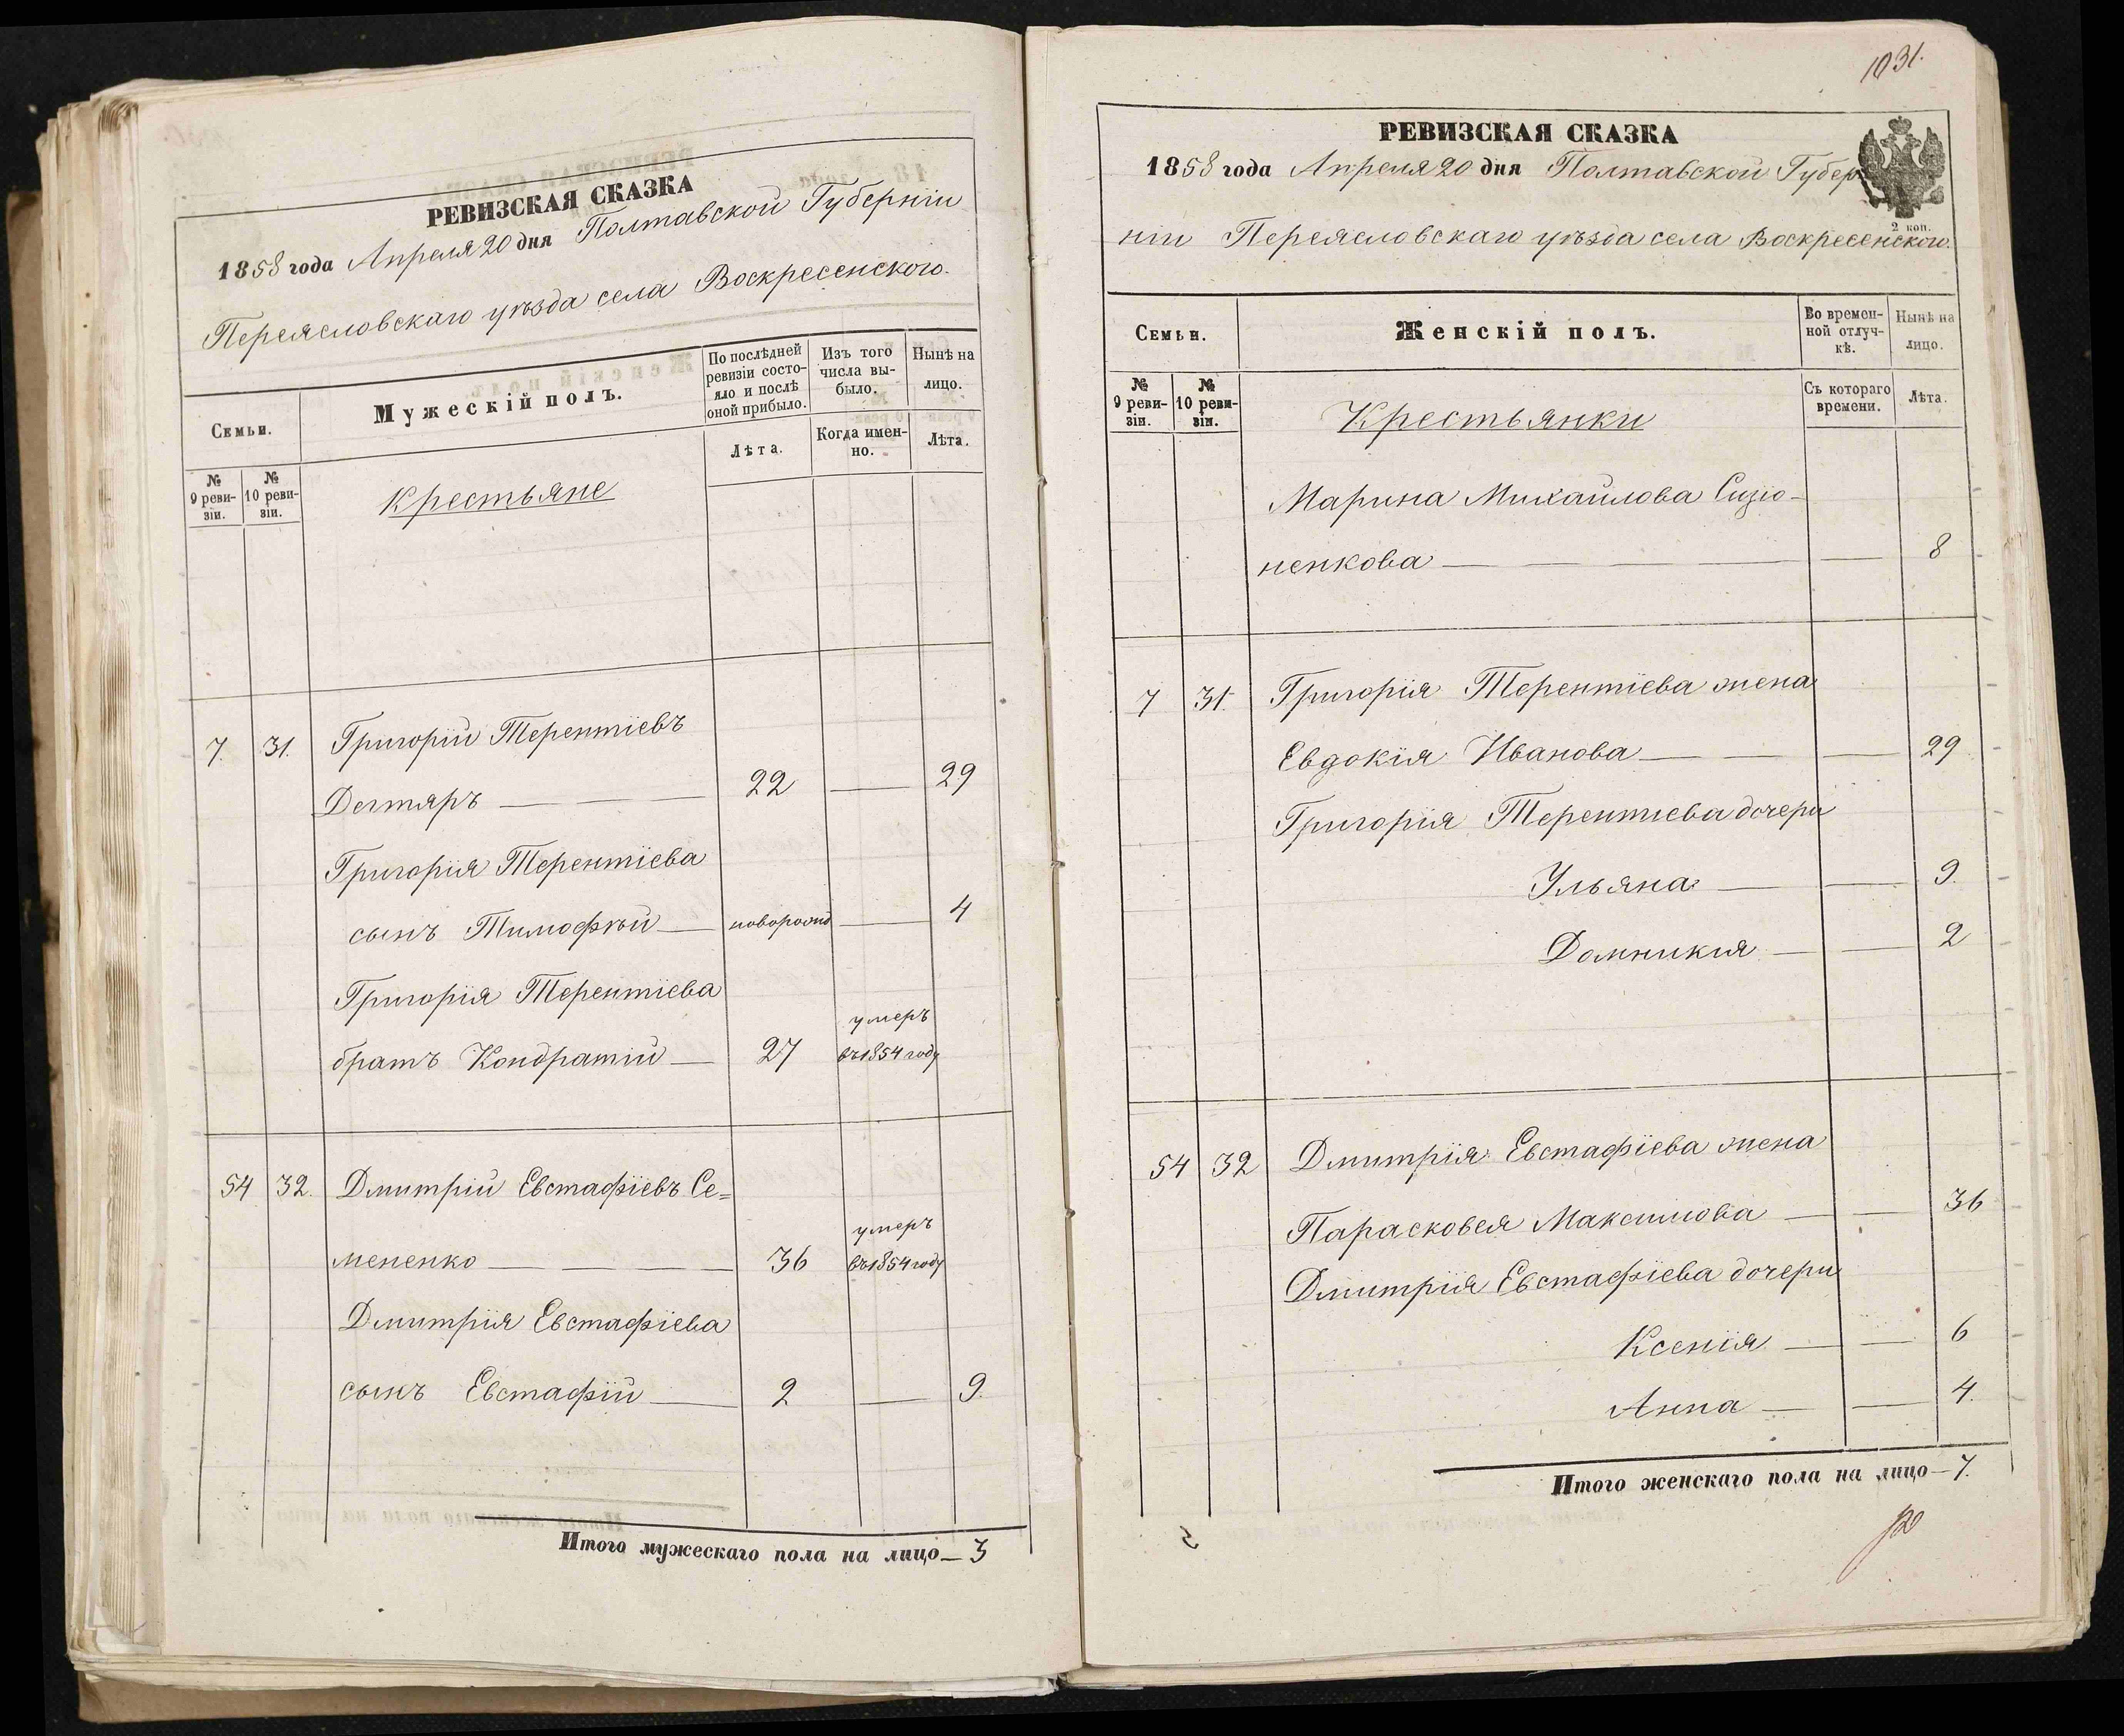 РЕВИЗСКАЯ СКАЗКА
1858 года Апреля 20 дня Полтавской Губерніи
Переясловскаго уѣзда села Воскресенского.
Семьи.
Мужескій полъ.
По послѣдней ревизіи состояло и послѣ оной прибыло.
Изъ того числа выбыло.
Нынѣ на лицо.
№ 9 ревизіи.
№ 10 ревизіи.
Крестьяне
Лѣта.
Когда именно.
Лѣта.
7. 31. Григорій Терентіевъ
Дегтяръ — — 22 — 29
Григорія Терентіева
сынъ Тимофѣй — новорожд — 4
Григорія Терентіева
умеръ
братъ Кондратій — 27 въ 1854 году
54 32. Дмитрій Евстафіевъ Се=
умеръ
мененко — — — 36 въ 1854 году
Дмитрія Евстафіева
сынъ Евстафій — 2 — 9.
Итого мужескаго пола на лицо — 3
1031.
РЕВИЗСКАЯ СКАЗКА
1858 года Апреля 20 дня Полтавской Губер
2 коп.
ніи Переясловскаго уѣзда села Воскресенского.
Семьи.
Женскій полъ.
Во временной отлучкѣ.
Нынѣ на лицо.
№ 9 ревизіи.
№ 10 ревизіи.
Крестьянки
Съ котораго времени.
Лѣта.
Марина Михайлова Сизіо-
ненкова — — — — — 8
7 31. Григорія Терентіева жена
Евдокія Иванова — — — 29
Григорія Терентиева дочери
Ульяна — — 9.
Домникия — — 2
54 32 Дмитрія Евстафіева жена
Парасковея Максимова — — 36
Дмитрія Евстафіева дочери
Ксенія — — 6
Анна — — 4.
Итого женскаго пола на лицо — 7.